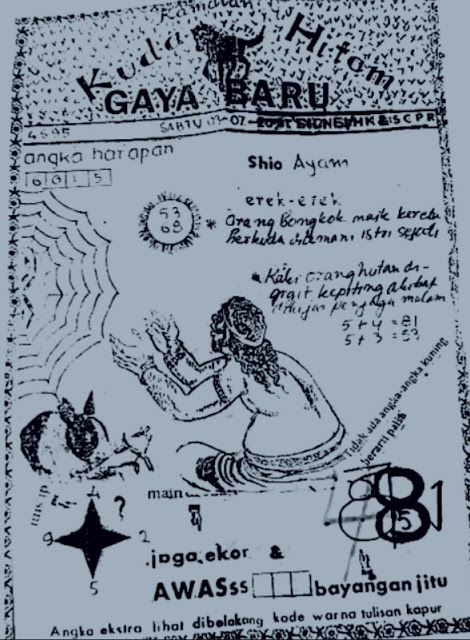 Ramalan
Kuda Hitam
GAYA BARU
4595
SABTU 07-07-2001 SIONG/HK & SCPR
angka harapan
6 0 1 5
Shio Ayam
53
68
erek-erek
* Orang Bongkok naik kereta
Berkuda ditemani istri sejoli
* Kaki orang hutan di-
gigit kepiting akibat
penjaga malam
5 + 4 = 81
5 + 3 = 53
Tidak ada angka-angka kuning
berarti palsu
?
9
2
5
main
7
jaga ekor &
4
AWASss
bayangan jitu
8 8 1
15
Angka ekstra lihat dibelakang kode warna tulisan kapur